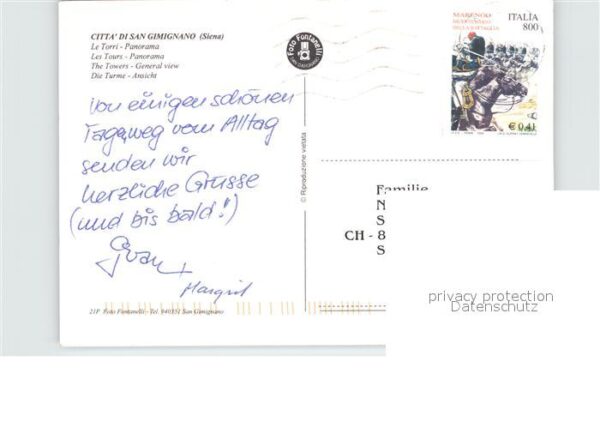 CITTA' DI SAN GIMIGNANO (Siena)
Le Torri - Panorama
Les Tours - Panorama
The Towers - General view
Die Turme - Ansicht
Foto Fontanelli
SAN GIMIGNANO
MARENGO
BICENTENARIO
DELLA BATTAGLIA
ITALIA
800
€ 0,41
von einigen schönen
Tagen weg vom Alltag
senden wir
herzliche Grüsse
(und bis bald!)
Ivan +
Margrit
© Riproduzione vietata
Familie
N
S
CH - 8
S
privacy protection
Datenschutz
21P Foto Fontanelli - Tel. 940351 San Gimignano